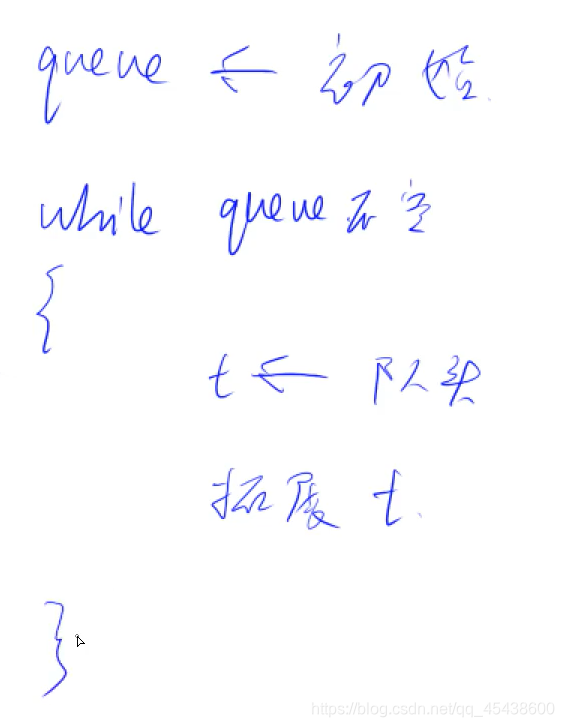 queue ← 初始
while queue不空
{
t ← 队头
拓展 t.
}
https://blog.csdn.net/qq_45438600